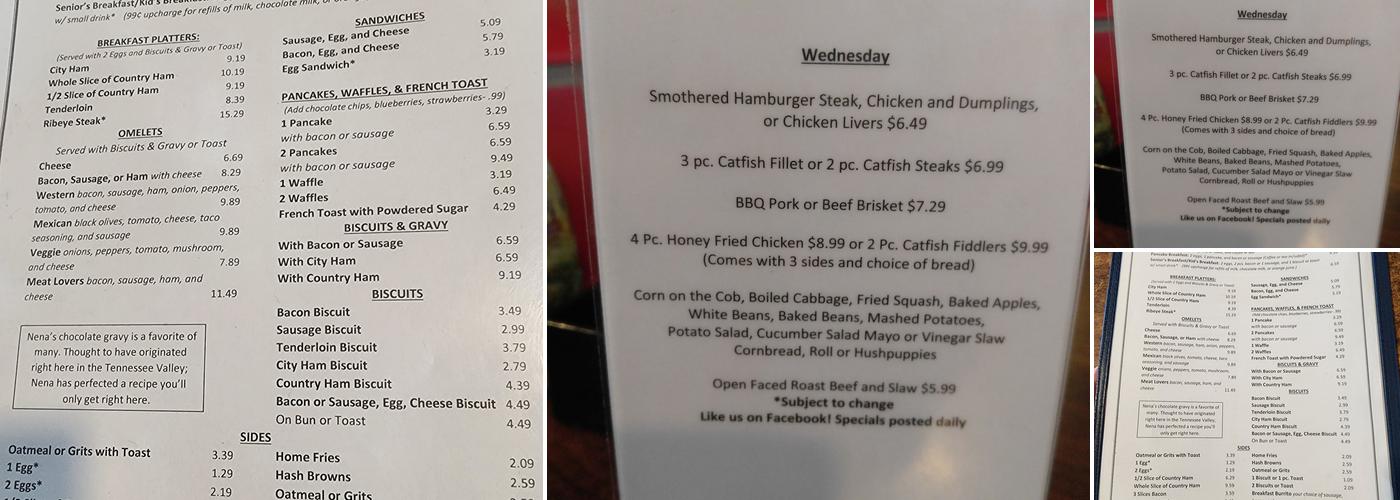 Senior's Breakfast/Kid's
w/ small drink* (99¢ upcharge for refills of milk, chocolate milk, or
BREAKFAST PLATTERS:
(Served with 2 Eggs and Biscuits & Gravy or Toast)
City Ham 9.19
Whole Slice of Country Ham 10.19
1/2 Slice of Country Ham 9.19
Tenderloin 8.39
Ribeye Steak* 15.29
OMELETS
Served with Biscuits & Gravy or Toast
Cheese 6.69
Bacon, Sausage, or Ham with cheese 8.29
Western bacon, sausage, ham, onion, peppers,
tomato, and cheese 9.89
Mexican black olives, tomato, cheese, taco
seasoning, and sausage 9.89
Veggie onions, peppers, tomato, mushroom,
and cheese 7.89
Meat Lovers bacon, sausage, ham, and
cheese 11.49
Nena's chocolate gravy is a favorite of
many. Thought to have originated
right here in the Tennessee Valley;
Nena has perfected a recipe you'll
only get right here.
SANDWICHES
Sausage, Egg, and Cheese 5.09
Bacon, Egg, and Cheese 5.79
Egg Sandwich* 3.19
PANCAKES, WAFFLES, & FRENCH TOAST
(Add chocolate chips, blueberries, strawberries- .99)
1 Pancake 3.29
with bacon or sausage 6.59
2 Pancakes 6.59
with bacon or sausage 9.49
1 Waffle 3.19
2 Waffles 6.49
French Toast with Powdered Sugar 4.29
BISCUITS & GRAVY
With Bacon or Sausage 6.59
With City Ham 6.59
With Country Ham 9.19
BISCUITS
Bacon Biscuit 3.49
Sausage Biscuit 2.99
Tenderloin Biscuit 3.79
City Ham Biscuit 2.79
Country Ham Biscuit 4.39
Bacon or Sausage, Egg, Cheese Biscuit 4.49
On Bun or Toast 4.49
SIDES
Oatmeal or Grits with Toast 3.39
1 Egg* 1.29
2 Eggs* 2.19
Home Fries 2.09
Hash Browns 2.59
Oatmeal or Grits
Wednesday
Smothered Hamburger Steak, Chicken and Dumplings,
or Chicken Livers $6.49
3 pc. Catfish Fillet or 2 pc. Catfish Steaks $6.99
BBQ Pork or Beef Brisket $7.29
4 Pc. Honey Fried Chicken $8.99 or 2 Pc. Catfish Fiddlers $9.99
(Comes with 3 sides and choice of bread)
Corn on the Cob, Boiled Cabbage, Fried Squash, Baked Apples,
White Beans, Baked Beans, Mashed Potatoes,
Potato Salad, Cucumber Salad Mayo or Vinegar Slaw
Cornbread, Roll or Hushpuppies
Open Faced Roast Beef and Slaw $5.99
*Subject to change
Like us on Facebook! Specials posted daily
Wednesday
Smothered Hamburger Steak, Chicken and Dumplings,
or Chicken Livers $6.49
3 pc. Catfish Fillet or 2 pc. Catfish Steaks $6.99
BBQ Pork or Beef Brisket $7.29
4 Pc. Honey Fried Chicken $8.99 or 2 Pc. Catfish Fiddlers $9.99
(Comes with 3 sides and choice of bread)
Corn on the Cob, Boiled Cabbage, Fried Squash, Baked Apples,
White Beans, Baked Beans, Mashed Potatoes,
Potato Salad, Cucumber Salad Mayo or Vinegar Slaw
Cornbread, Roll or Hushpuppies
Open Faced Roast Beef and Slaw $5.99
*Subject to change
Like us on Facebook! Specials posted daily
BREAKFAST PLATTERS:
(Served with 2 Eggs and Biscuits & Gravy or Toast)
City Ham 9.19
Whole Slice of Country Ham 10.19
1/2 Slice of Country Ham 9.19
Tenderloin 8.39
Ribeye Steak* 15.29
OMELETS
Served with Biscuits & Gravy or Toast
Cheese 6.69
Bacon, Sausage, or Ham with cheese 8.29
Western bacon, sausage, ham, onion, peppers,
tomato, and cheese 9.89
Mexican black olives, tomato, cheese, taco
seasoning, and sausage 9.89
Veggie onions, peppers, tomato, mushroom,
and cheese 7.89
Meat Lovers bacon, sausage, ham, and
cheese 11.49
Nena's chocolate gravy is a favorite of
many. Thought to have originated
right here in the Tennessee Valley;
Nena has perfected a recipe you'll
only get right here.
SANDWICHES
Sausage, Egg, and Cheese 5.09
Bacon, Egg, and Cheese 5.79
Egg Sandwich* 3.19
PANCAKES, WAFFLES, & FRENCH TOAST
(Add chocolate chips, blueberries, strawberries- .99)
1 Pancake 3.29
with bacon or sausage 6.59
2 Pancakes 6.59
with bacon or sausage 9.49
1 Waffle 3.19
2 Waffles 6.49
French Toast with Powdered Sugar 4.29
BISCUITS & GRAVY
With Bacon or Sausage 6.59
With City Ham 6.59
With Country Ham 9.19
BISCUITS
Bacon Biscuit 3.49
Sausage Biscuit 2.99
Tenderloin Biscuit 3.79
City Ham Biscuit 2.79
Country Ham Biscuit 4.39
Bacon or Sausage, Egg, Cheese Biscuit 4.49
On Bun or Toast 4.49
SIDES
Oatmeal or Grits with Toast 3.39
1 Egg* 1.29
2 Eggs* 2.19
1/2 Slice of Country Ham 6.29
Whole Slice of Country Ham
3 Slices Bacon
Home Fries 2.09
Hash Browns 2.59
Oatmeal or Grits 2.59
1 Biscuit or 1 pc. Toast 1.09
2 Biscuits or Toast 2.09
Breakfast Burrito your choice of sausage,